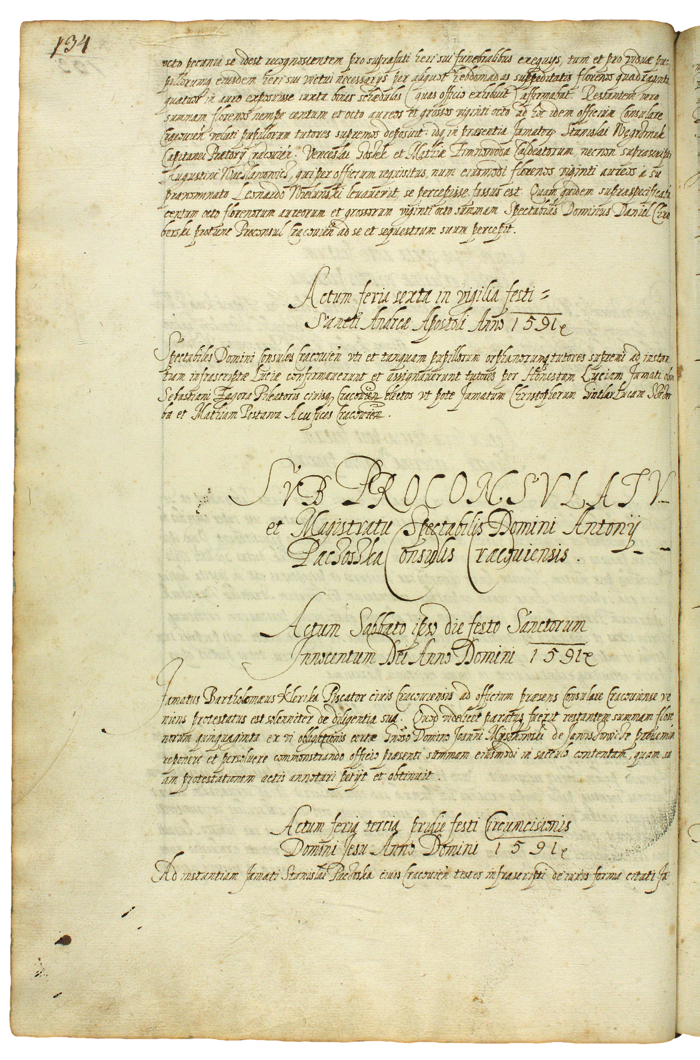 134
octo pecunia se idest recognoscentem pro suprafati heri sui funebralibus exequijs, tum et pro viduæ pu-
pillorumq eiusdem heri sui victui necessarijs per august hebdomadas suppeditatis florenos quadraginta
quatuor in auro exposuisse iuxta binas schedulas quas officio exhibuit affirmabat. Restantem vero
summam florenos nempe centum et octo aureos et grossos viginti octo ad hoc idem officium Consulare
Cracouien velati pupillorum tutores supremos deposuit. idq in præsentia famatorum Stanislai
Capitanei Cracouien. Venceslai et Mathiæ Caldeatorum necnon suprascripti
Augustini qui per officium requisitus, num eiusmodi florenos viginti aureos a su
prænominato Leonardo leuauerit, se percepisse fassus est. Quam quidem supraspecificatam
centum octo florenorum aureorum et grossorum viginti octo summam Spectabilis Dominus Daniel Chro
berski protunc Proconsul Cracouien ad se et sequestrum suum percepit.
Actum feria sexta in vigilia festi =
Sancti Andreæ Apostoli Anno 1591
Spectabiles Domini Consules Cracouien vti et tanquam pupillorum orphanorumq tutores supremi ad instan
tiam infrascriptæ Luciæ confirmauerunt et assignauerunt tutores per Honestam Luciam famati olim
Sebastiani Zagora Pileatoris ciuisq Cracouien electos vt pote famatum Christophorum Lucam
ba et Mathiam Pestana Acufices Cracouien.
SVB PROCONSVLATV
et Magistratu Spectabilis Domini Antonij
Pachoska Consulis Cracouiensis.
Actum Sabbato ipso die festo Sanctorum
Innocentum Dei Anno Domini 1591
Famatus Bartholomæus Klerika Piscator ciuis Cracouiensis ad officium præsens Consulare Cracouiense ve
niens protestatus est solenniter de diligentia sua. Quod videlicet paratus fuerit restantem summam flore
norum quinquaginta ex vi obligationis certæ Gnoso Domino Joanni Myszkowski de
reponere et persoluere commonstrando officio præsenti summam eiusmodi in sacculo contentam, quam su
am protestationem actis annotari petijt et obtinuit.
Actum feria tercia pridie festi Circumcisionis
Domini Jesu Anno Domini 1591
Ad instantiam famati Stanislai Pachoska ciuis Cracouien testes infrascripti de iuris forma citati